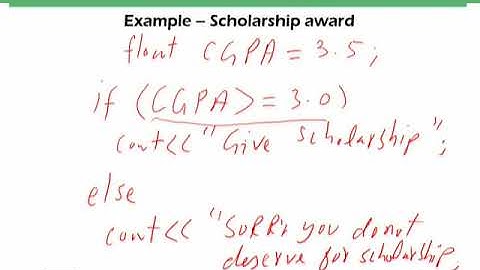 Example – Scholarship award
float CGPA = 3.5;
if (CGPA>= 3.0)
cout<< "Give scholarship";
else
cout<< "SORRY you donot
deserve for scholarship,